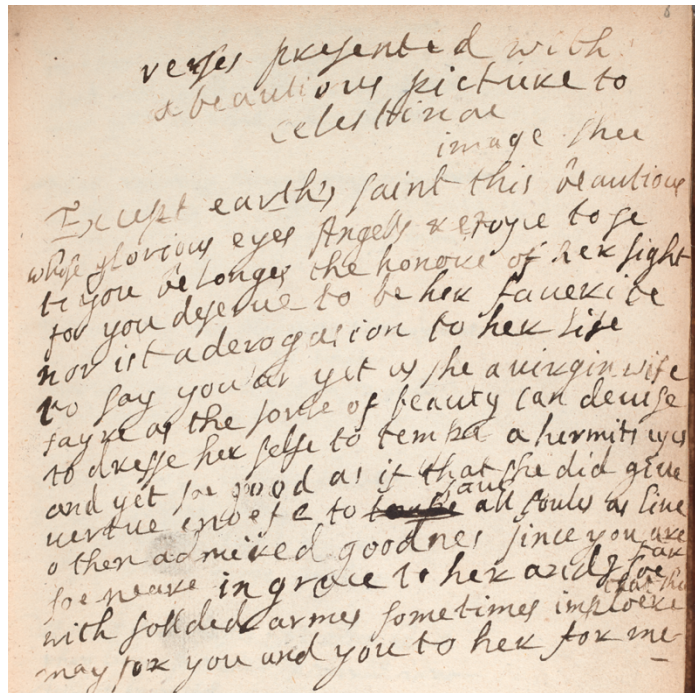 verses presented with
a beautious picture to
Celestinae
image shee
Except earth's saint this beautious
whose glorious eyes Angells reioyce to se
to you belonges the honore of her sight
for you deserve to be her faverite
nor ist aderogasion to her life
to say you ar yet as she a virgin wife
fayre as the soule of beauty can devise
to dresse her selfe to tempt a hermits eyes
and yet soe good as if that she did give
vertue enofe to save all soules as live
other admired goodnes since you are
soe neare in grace to her and soe far
that she
with follded armes sometimes imploere
may for you and you to her for me